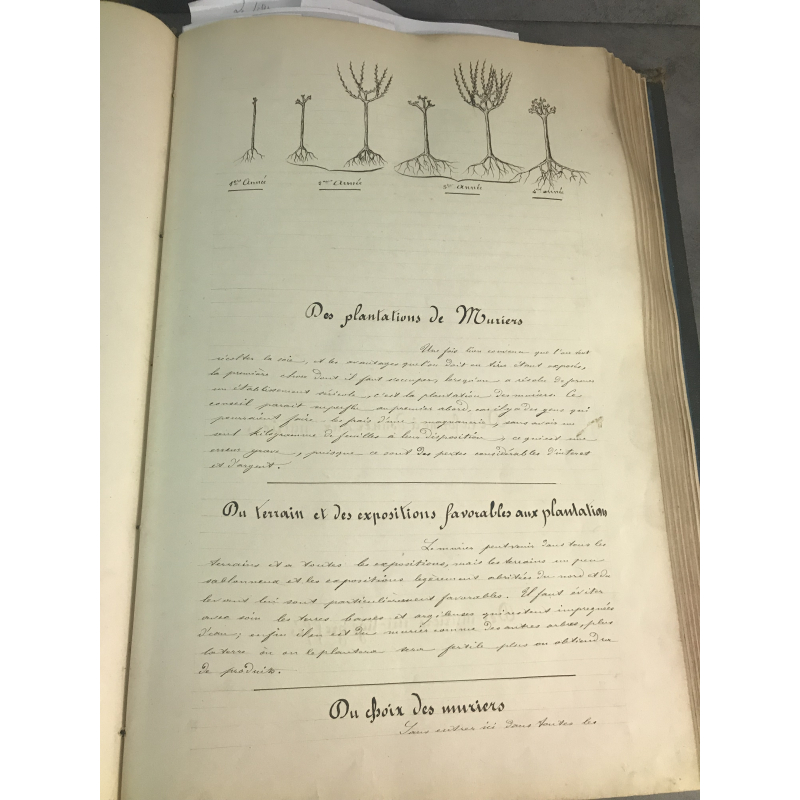 1ère Année
2me Année
3me Année
6e Année
Des plantations de Muriers
Une fois bien convenu que l'on doit
récolter la soie, et les avantages que l'on doit en tirer étant exposés,
la première chose dont il faut s'occuper, lorsqu'on a résolu de
un établissement séricole, c'est la plantation des muriers. Ce
conseil parait superflu au premier abord, car il y a des gens qui
pourraient faire les frais d'une magnanerie, sans avoir un
seul kilogramme de feuilles à leur disposition, ce qui est une
erreur grave, puisque ce sont des pertes considérables d'intérêt
et d'argent.
Du terrain et des expositions favorables aux plantation
Le murier peut venir dans tous les
terrains et à toutes les expositions, mais les terrains un peu
sablonneux et les expositions légèrement abritées du nord et du
levant lui sont particulièrement favorables. Il faut éviter
avec soin les terres basses et argileuses qui restent imprégnées
d'eau, enfin il en est du murier comme des autres arbres, plus
la terre où on le plantera sera fertile plus on obtiendra
de produits.
Du choix des muriers
Sans entrer ici dans toutes les